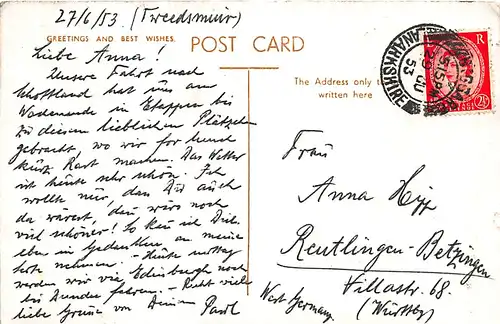 27/6/53 (Tweedsmuir)
GREETINGS AND BEST WISHES.
POST CARD
Liebe Anna!
Unsere Fahrt nach
Schottland hat uns am
Wochenende in Etappen bis
zu diesem lieblichen Plätzchen
gebracht, wo wir für
kurz Rast machen. Das Wetter
ist heute sehr schön. Ich
wollte nur, dass Du auch
da wärest, das wäre noch
viel schöner! So kann ich Dich
eben in Gedanken an meine
Seite nehmen. - Heute mittag
werden wir via Edinburgh noch
bis Dundee fahren. - Recht viel
liebe Grüsse von Deinem Paul
The Address only
written here
LANARKSHIRE
53
R
2½
Frau
Anna Hipp
Reutlingen-Betzingen
Villastr. 68.
West Germany
(Württbg)